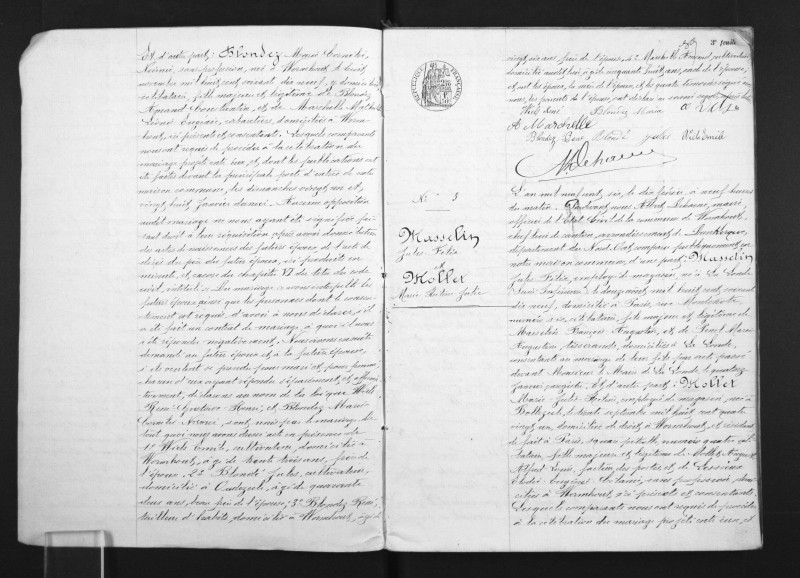 Et d'autre part: Blondez Marie Cornélie,
Noémie, sans profession, née à Wormhout, le huit
novembre mil huit cent quatre dix neuf, y domiciliée,
célibataire, fille majeure et légitime de Blondez
Amand Constantin, et de Marchelle Mathilde
Eugénie, cabaretiers, domiciliés à Worm-
hout, ici présents et consentants. Lesquels comparants
nous ont requis de procéder à la célébration du
mariage projeté entre eux, et dont les publications ont
été faites devant la principale porte d'entrée de notre
maison commune, les dimanches vingt un et
vingt huit janvier dernier. Aucune opposition
audit mariage ne nous ayant été signifiée, fai-
sant droit à leur réquisition, après avoir donné lecture
des actes de naissance des futurs époux, de l'acte de
décès du père du futur époux, ici produits en
due forme, et encore du chapitre VI du titre du code
civil, intitulé: Du mariage, nous avons interpellé les
futurs époux ainsi que les personnes dont le consen-
tement est requis, d'avoir à nous déclarer, s'il
a été fait un contrat de mariage, à quoi il nous
a été répondu négativement. Nous avons ensuite
demandé au futur époux et à la future épouse,
s'ils veulent se prendre pour mari et pour femme,
chacun d'eux ayant répondu séparément, et affirma-
tivement, déclarons au nom de la loi que Wils
René Gustave Henri, et Blondez Marie
Cornélie Noémie, sont unis par le mariage. De
tout quoi nous avons dressé acte en présence de
de Wils Emile, cultivateur, domicilié à
Wormhout, âgé de trente trois ans, frère de
l'époux, 2° Blondé Jules, cultivateur,
domicilié à Oudezeele, âgé de quarante
deux ans, beau frère de l'épouse; 3° Blondez René,
tailleur d'habits, domicilié à Wormhout, âgé de
RÉPUBLIQUE FRANÇAISE
N° 5
Masselin
Jules Félix
et
Mollet
Marie Julie
2e feuille
vingt six ans, frère de l'épouse, 4° Marchelle Amand, cultivateur
domicilié audit lieu, âgé de cinquante huit ans, oncle de l'épouse,
et ont les époux, la mère de l'époux, et les quatre témoins signé avec
nous, les parents de l'épouse, ont déclaré ne savoir
Wils René Blondez Marie
A Marchelle
Blondez René Blondé Jules Wils Emile
A Dehaene
L'an mil neuf cent, six, le dix février, à neuf heures
du matin, Pardevant nous Albert Dehaene, maire,
officier de l'Etat Civil de la commune de Wormhout,
chef lieu de canton, arrondissement de Dunkerque,
département du Nord. Ont comparu publiquement en
notre maison commune, d'une part: Masselin
Jules Félix, employé de magasin, né à La Londe
Seine Inférieure, le douze août, mil huit cent, soixante
dix neuf, domicilié à Paris, rue
numéro six, célibataire, fils majeur et légitime de
Masselin François Augustin, et de Marie
Augustine, tisserands, domiciliés à La Londe,
consentants au mariage de leur fils par acte passé
devant Monsieur le Maire de La Londe, le quatorze
janvier; Et d'autre part: Mollet
Marie Julie, employée de magasin, née à
Bollezeele, le trente septembre mil huit cent quatre
vingt un, domiciliée de droit à Wormhout, et résidant
de fait à Paris, numéro quatre, céli-
bataire, fille majeure et légitime de Mollet
Alfred Louis, facteur des postes, et de
Eugénie Octavie, sans profession, domi-
ciliés à Wormhout, ici présents et consentants;
Lesquels comparants nous ont requis de procéder
à la célébration du mariage projeté entre eux, et